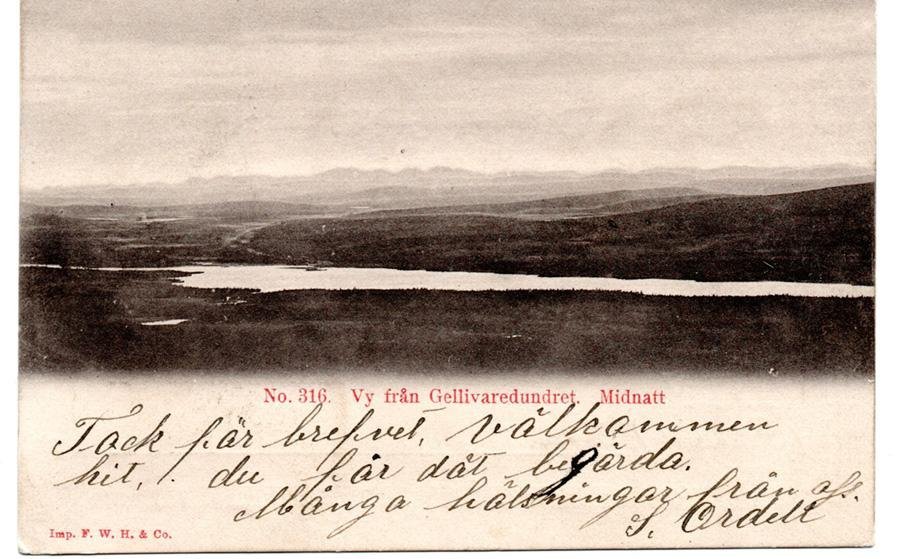 No. 316. Vy från Gellivaredundret. Midnatt
Tack får brefvet, välkommen
hit, du får dåt begärda.
Många hälsningar från oss.
S. Ordell
Imp. F. W. H. & Co.